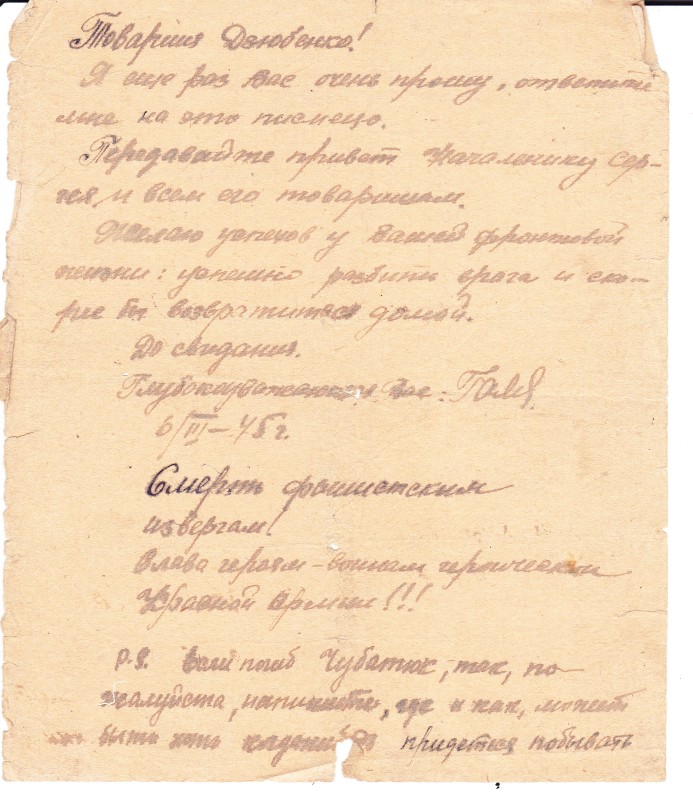 Товарищ Дзюбенко!
Я еще раз Вас очень прошу, ответите
мне на это письмецо.
Передавайте привет Начальнику Сер-
гея, и всем его товаришам.
Желаю успехов у Вашей фронтовой
жизни: успешно разбить врага и ско-
рее бы возвратиться домой.
До свидания.
Глубокоуважающая Вас: Галя.
6/III – 45 г.
Смерть фашистским
извергам!
Слава героям – воинам героической
Красной Армии!!!
P.S. Если погиб Чубатюк, так, по
жалуйста, напишите, где и как, может
быть хоть придется побывать